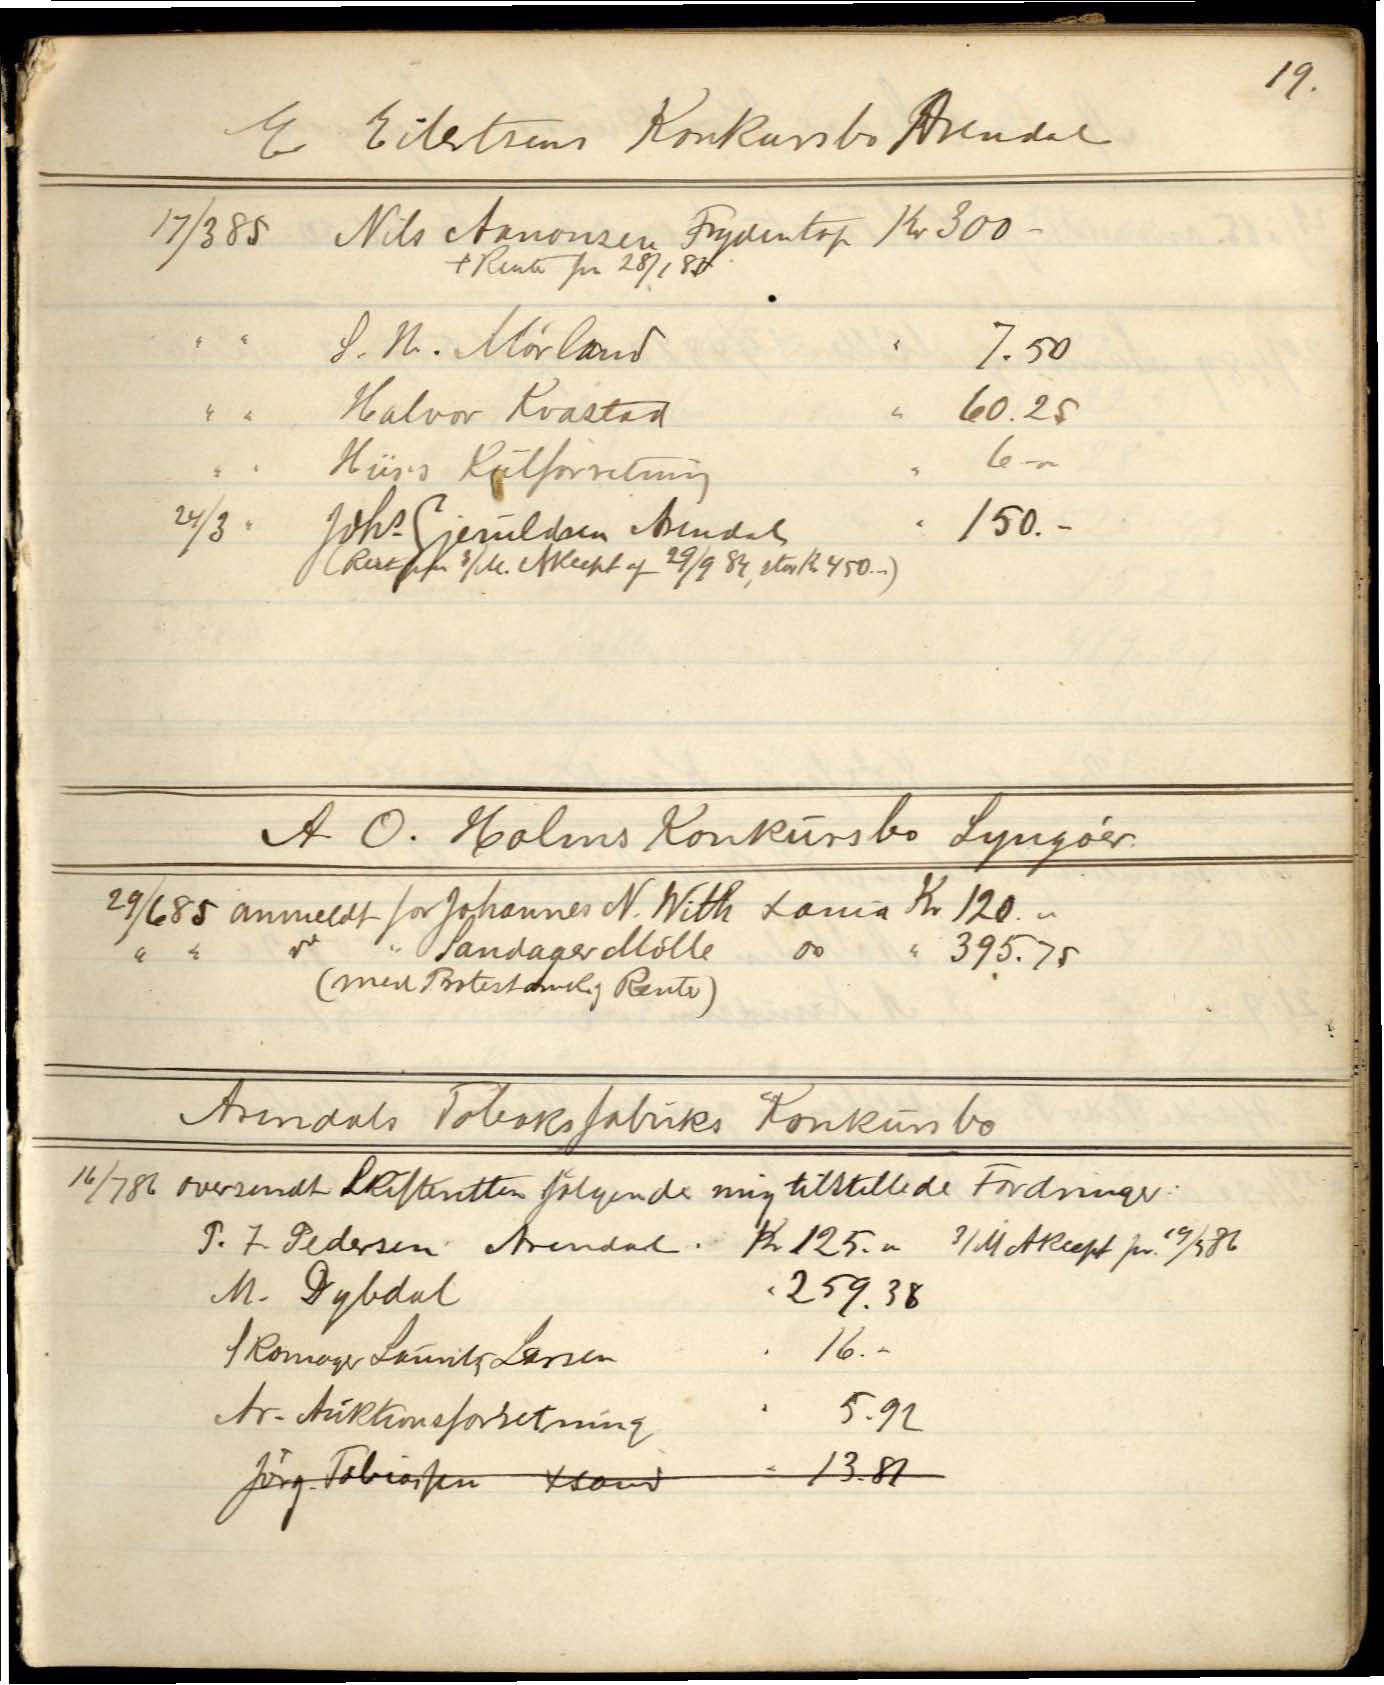 19.
E Eilertsens Konkursbo Arendal
17/3 85 Nils Aanonsen Frydentop Kr 300 -
+ Rente fra 28/1 85
" " S. N. Mörland " 7.50
" " Halvor Kvastad " 60.25
" " Hiis's Kulforretning " 6 -"
24/3 " Johs. Gjeruldsen Arendal " 150.-
(Rest pr 3/M. Akcept af 29/9 84, stor Kr 450.-)
A O. Holms Konkursbo Lyngöer.
29/6 85 anmeldt for Johannes N. With Xania Kr 120. "
" " do " Sandager Mölle do " 395.75
(med Protestomk. og Rente)
Arendals Tobaksfabriks Konkursbo
16/7 86 oversendt Skifteretten fölgende mig tilstillede Fordringer:
P. Z. Pedersen Arendal. Kr 125. " 3/M Akcept pr. 19/5 86
M. Dybdal " 259.38
Skomager Lauritz Larsen " 16.-
Ar. Auktionsforretning " 5.92
Jörg. Tobiassen Xsand " 13.81